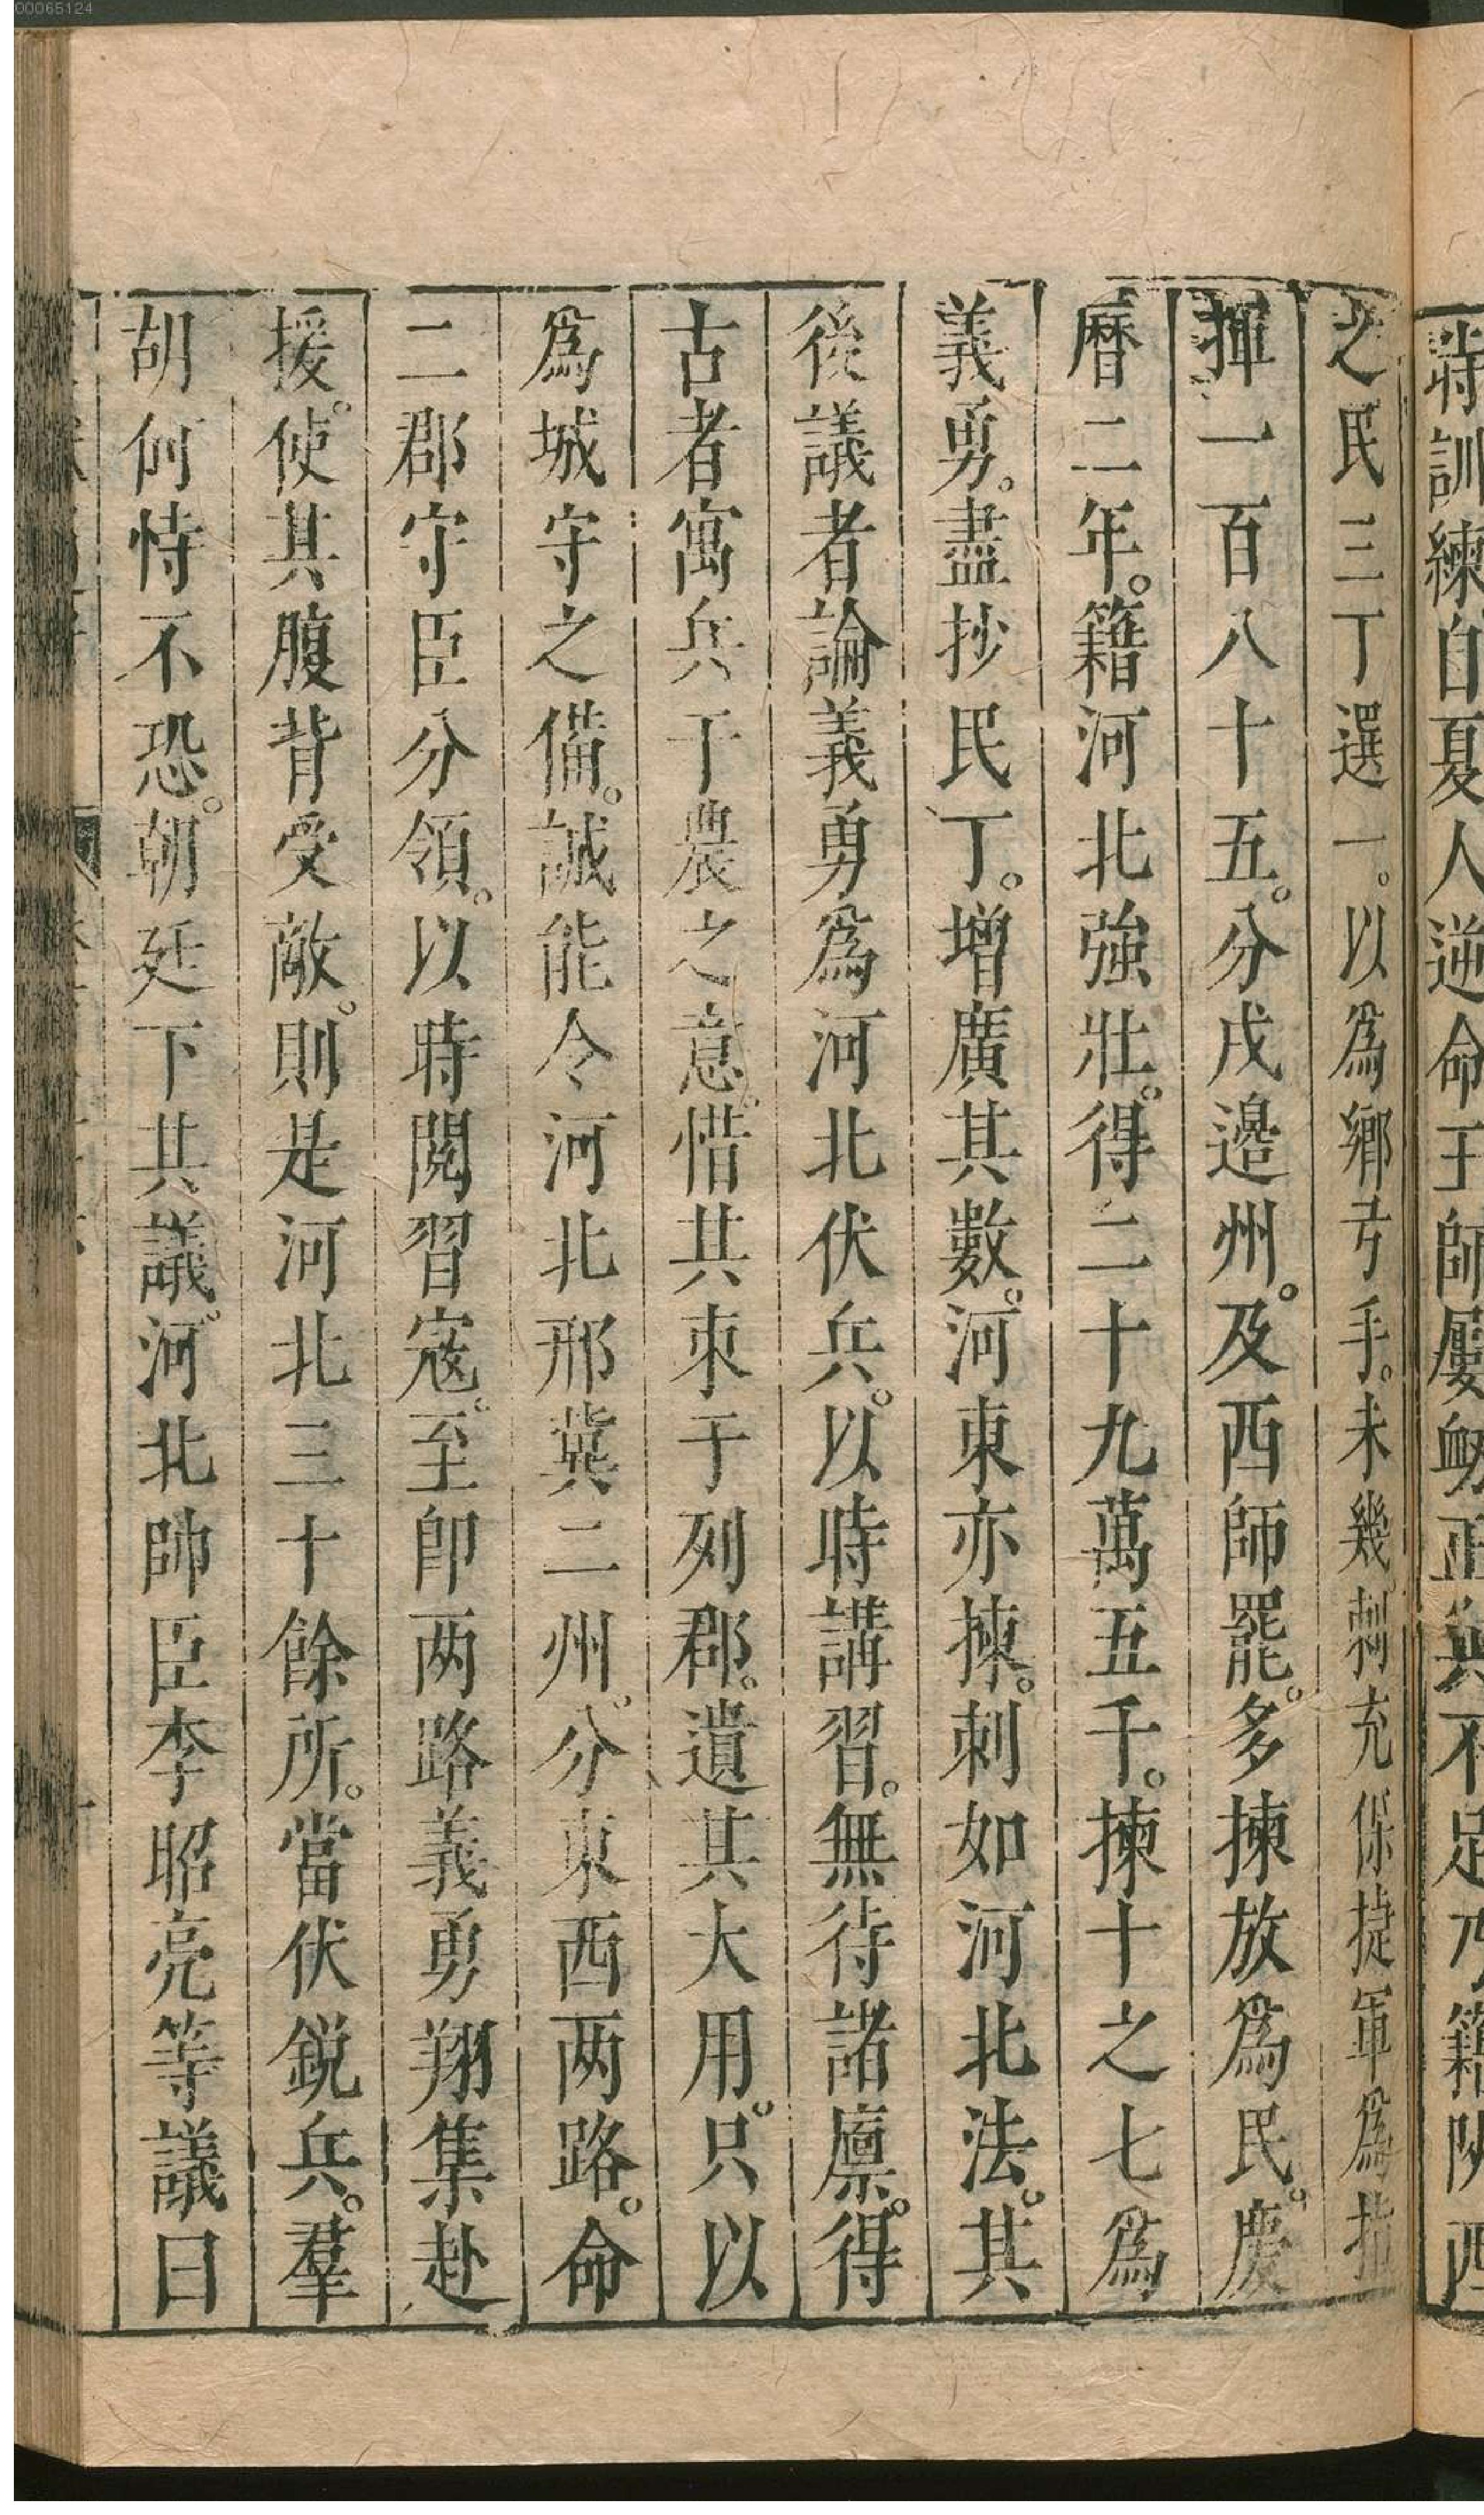 00065124
訓練自夏人逆命王師屢衂正兵不足乃籍陝西
之民三丁選一。以爲鄉弓手。未幾刺充保捷軍爲指
揮一百八十五。分戍邊州。及西師罷。多揀放爲民。慶
曆二年。籍河北強壯。得二十九萬五千。揀十之七爲
義勇。盡抄民丁。增廣其數。河東亦揀。刺如河北法。其
後議者論義勇爲河北伏兵。以時講習。無待諸廪。得
古者寓兵于農之意。惜其束于列郡。遺其大用。只以
爲城守之備。誠能令河北邢冀二州。分東西两路。命
二郡守臣分領。以時閱習寇。至卽两路義勇翔集赴
援。使其腹背受敵。則是河北三十餘所。當伏鋭兵。羣
胡何恃不恐。朝廷下其議。河北帥臣李昭亮等議曰